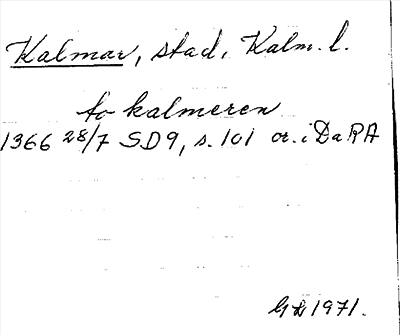 Kalmar, stad, Kalm. l.
to kalmeren
1366 28/7 SD9, s. 101 or. i DaRA
GL 1971.